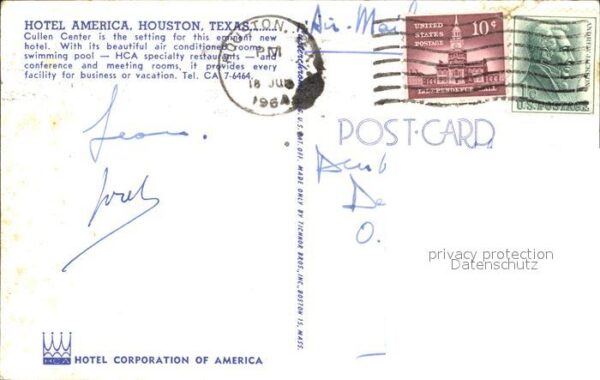 HOTEL AMERICA, HOUSTON, TEXAS
Cullen Center is the setting for this eminent new
hotel. With its beautiful air conditioned rooms —
swimming pool — HCA specialty restaurants — and
conference and meeting rooms, it provides every
facility for business or vacation. Tel. CA 7-6464.
PM
18 JUN
1964
Air-Mail
UNITED STATES POSTAGE
10¢
INDEPENDENCE HALL
1¢
U.S. POSTAGE
POST CARD
U.S. PAT. OFF. MADE ONLY BY TICHNOR BROS., INC., BOSTON 15, MASS.
De
O.
privacy protection
Datenschutz
HCA
HOTEL CORPORATION OF AMERICA